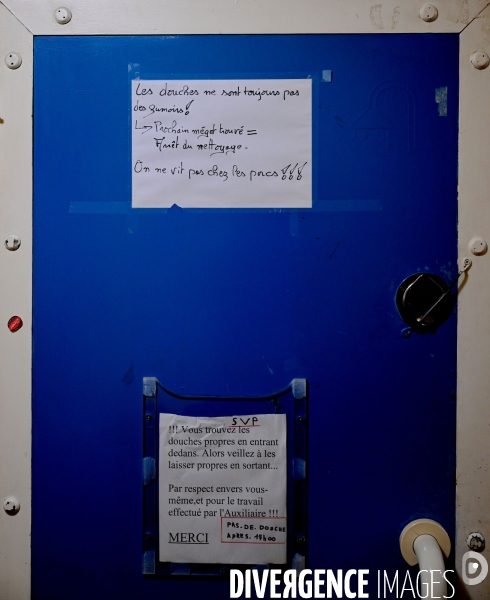 Les douches ne sont toujours pas
des fumoirs !
↳ Prochain mégot trouvé =
Arrêt du nettoyage.
On ne vit pas chez les porcs !!!
SVP
!!! Vous trouvez les
douches propres en entrant
dedans. Alors veillez à les
laisser propres en sortant...
Par respect envers vous-
même,et pour le travail
effectué par l'Auxiliaire !!!
MERCI
PAS.DE.DOUCHE
APRES. 19h00
DIVERGENCE IMAGES